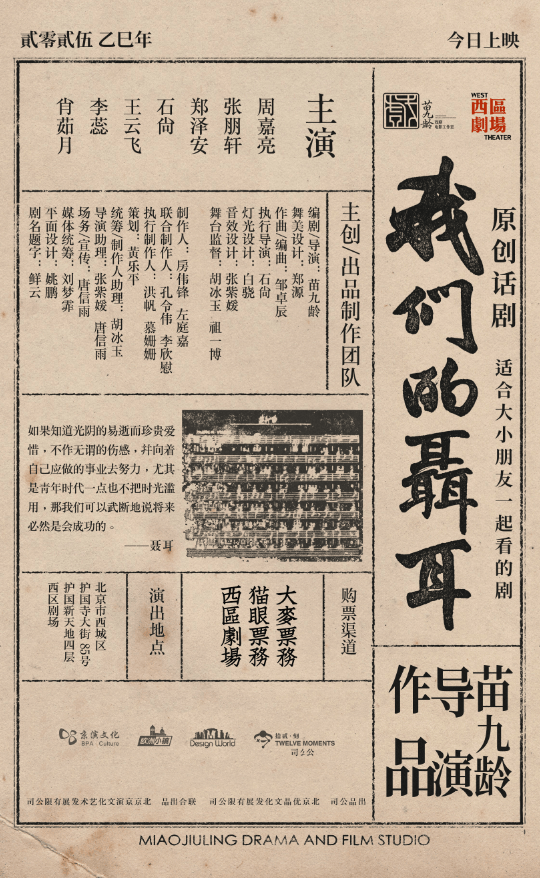 贰零贰伍 乙巳年
今日上映
WEST
西區
劇場
THEATER
苗九龄
原创话剧
适合大小朋友一起看的剧
我们的聂耳
苗九龄
导演
作品
主演
周嘉亮
张朋轩
郑泽安
石尚
王云飞
李蕊
肖茹月
主创/出品制作团队
编剧/导演：苗九龄
舞美设计：郑源
作曲/编曲：邹卓辰
执行导演：石尚
灯光设计：白骁
音效设计：张紫媛
舞台监督：胡冰玉 祖一博
制作人：房伟锋 左庭嘉
联合制作人：孔令伟 李欣慰
执行制作人：洪帆 慕姗姗
策划：黄乐平
统筹/制作人助理：胡冰玉
导演助理：张紫媛 唐信雨
场务/宣传：唐信雨
媒体统筹：刘梦霏
平面设计：姚鹏
剧名题字：鲜云
如果知道光阴的易逝而珍贵爱
惜，不作无谓的伤感，并向着
自己应做的事业去努力，尤其
是青年时代一点也不把时光滥
用，那我们可以武断地说将来
必然是会成功的。
——聂耳
购票渠道
大麥票務
猫眼票務
西區劇場
演出地点
北京市西城区
护国寺大街85号
护国新天地四层
西区剧场
京演文化
BPA Culture
欧洲小镇
Design World
拾贰·刻
TWELVE MOMENTS
司公限有展发术艺化文演京京北 品出合联 司公限有展发化文品优京北 司公品出
MIAOJIULING DRAMA AND FILM STUDIO